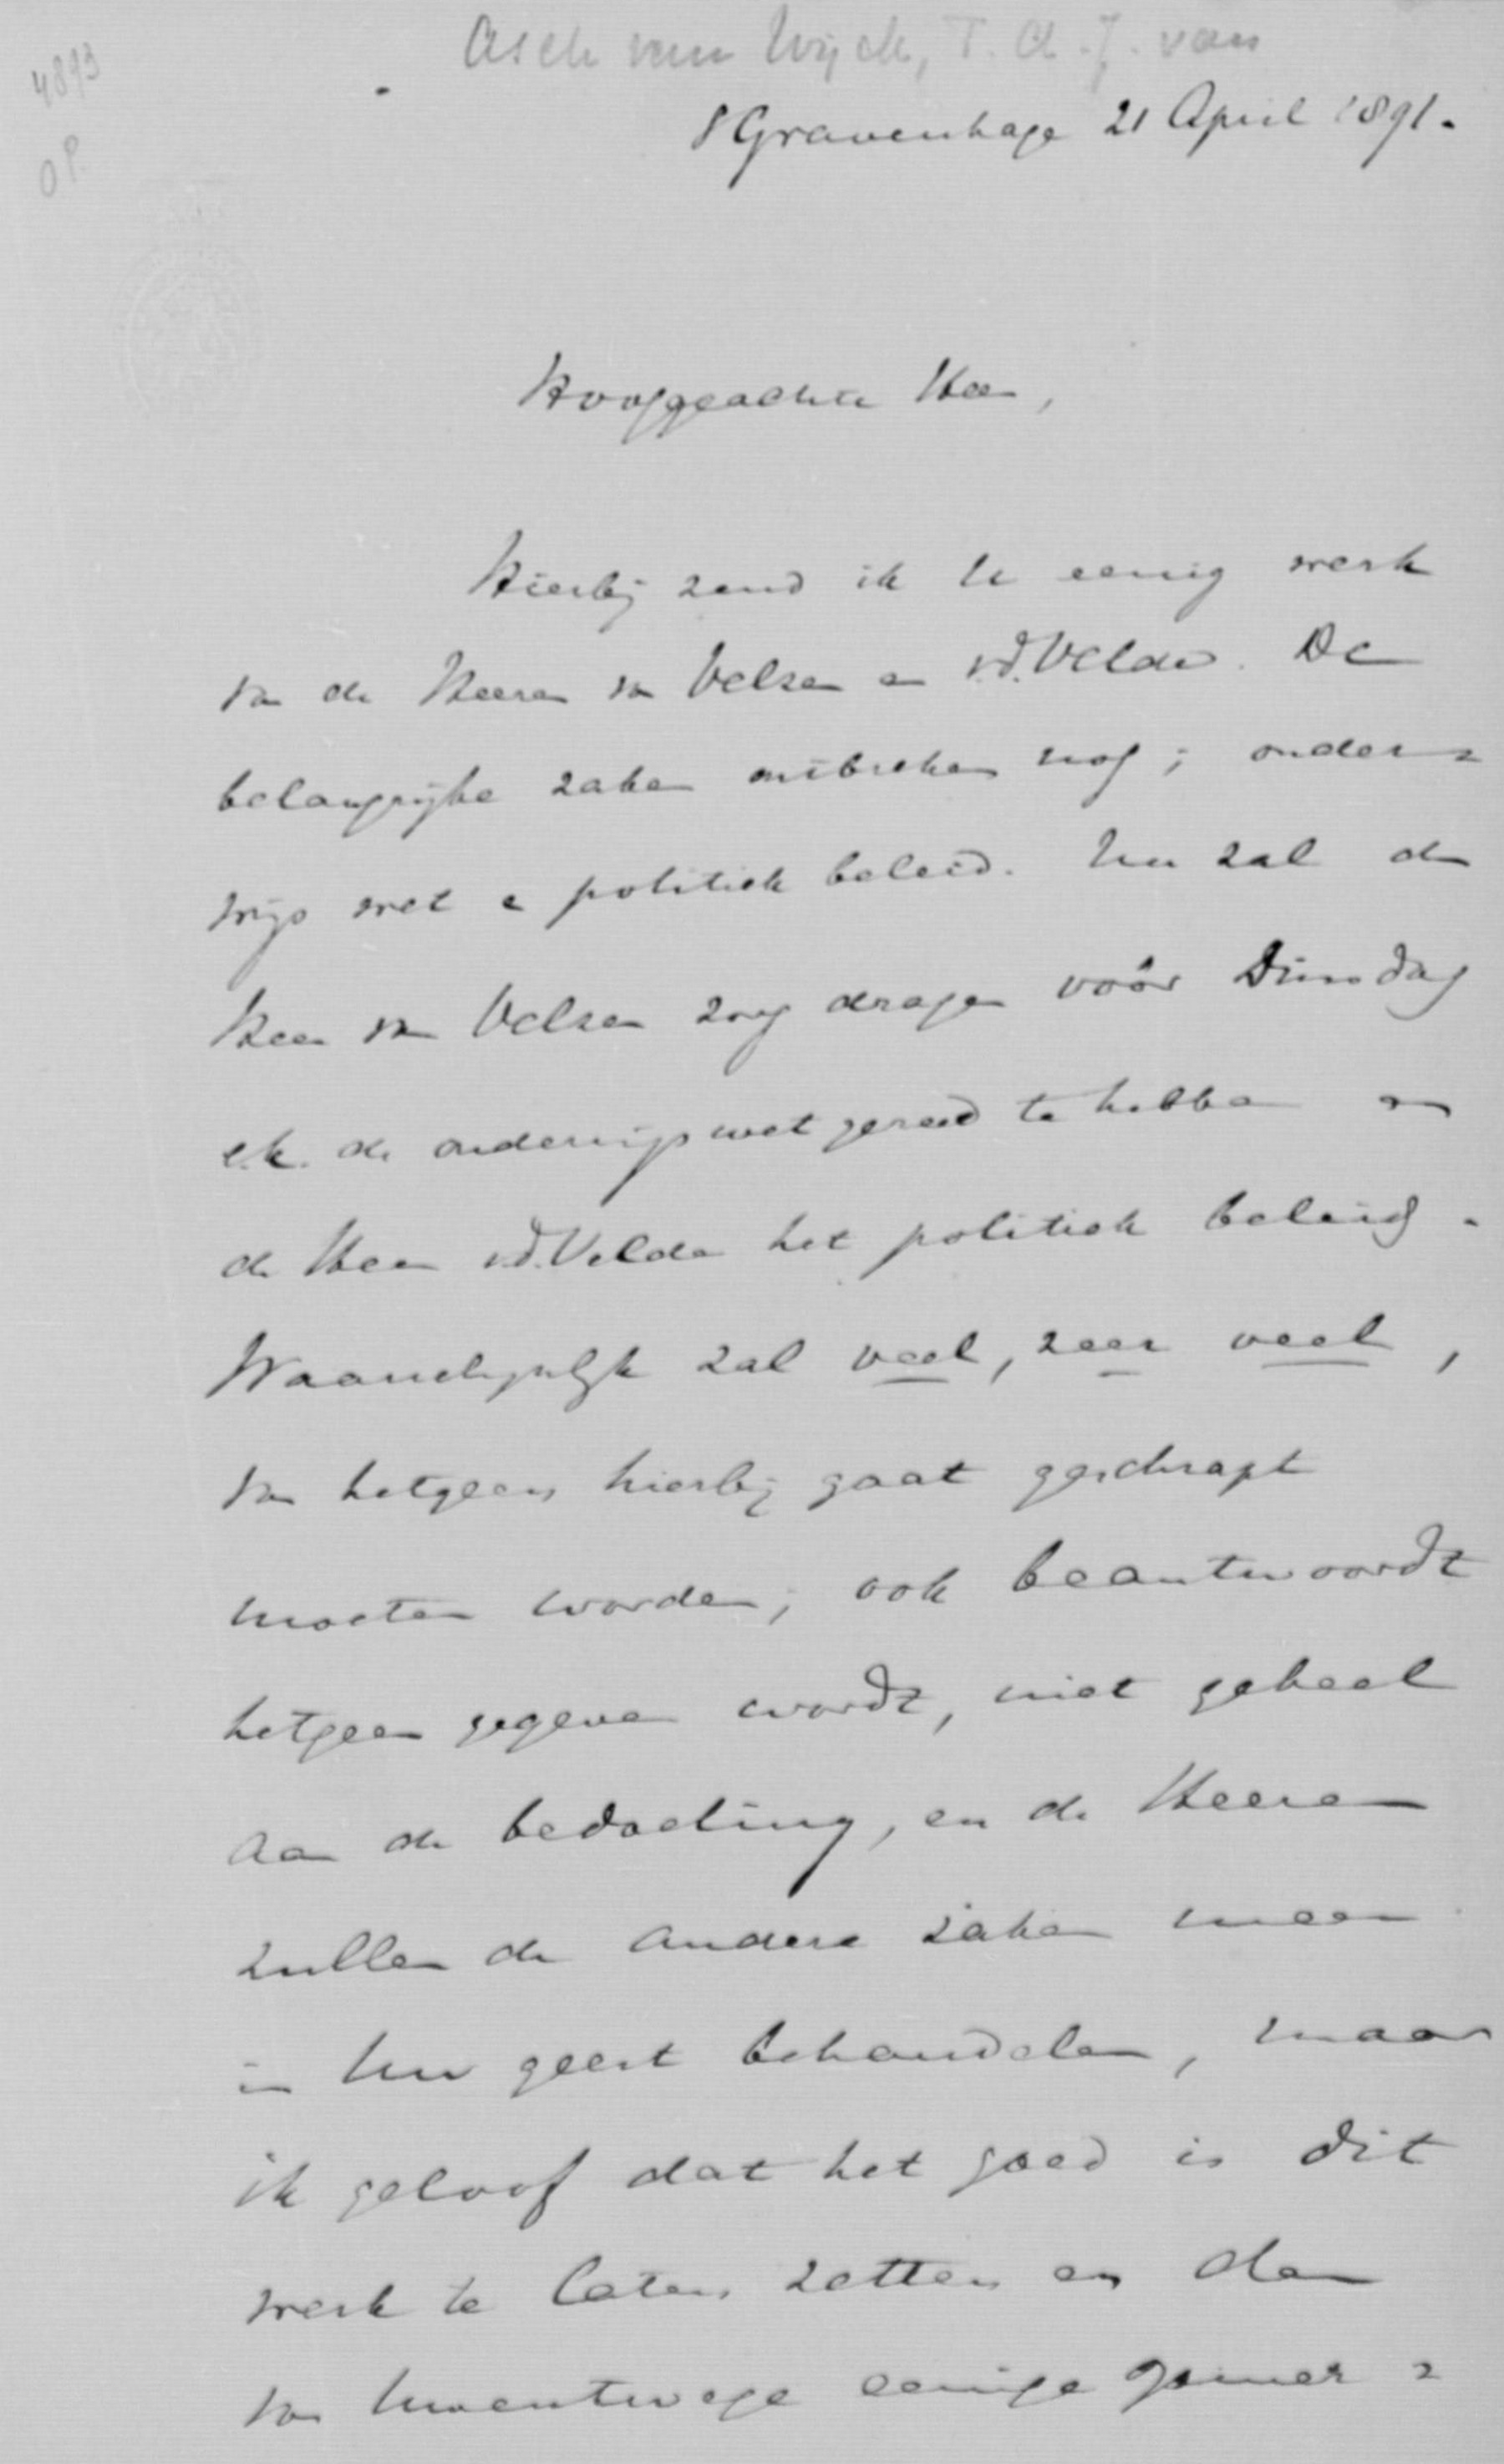 4893
OP.
Asch van Wijck, T. A. J. van
's Gravenhage 21 April 1891.
Hooggeachte Heer,
Hierbij zend ik U eenig werk
van de Heeren van Velsen en v.d. Velde. De
belangrijke zaken ontbreken nog; onder=
wijs wet en politiek beleid. Nu zal de
Heer van Velsen zorg dragen vóór Dinsdag
e.k. de onderwijswet gereed te hebben en
de Heer v.d. Velde het politiek beleid.
Waarschijnlijk zal veel, zeer veel,
van hetgeen hierbij gaat geschrapt
moeten worden; ook beantwoordt
hetgeen gegeven wordt, niet geheel
aan de bedoeling, en de Heeren
zullen de andere zaken meer
in Uw geest behandelen, maar
ik geloof dat het goed is dit
werk te laten zetten en dan
van Uwentwege eenige